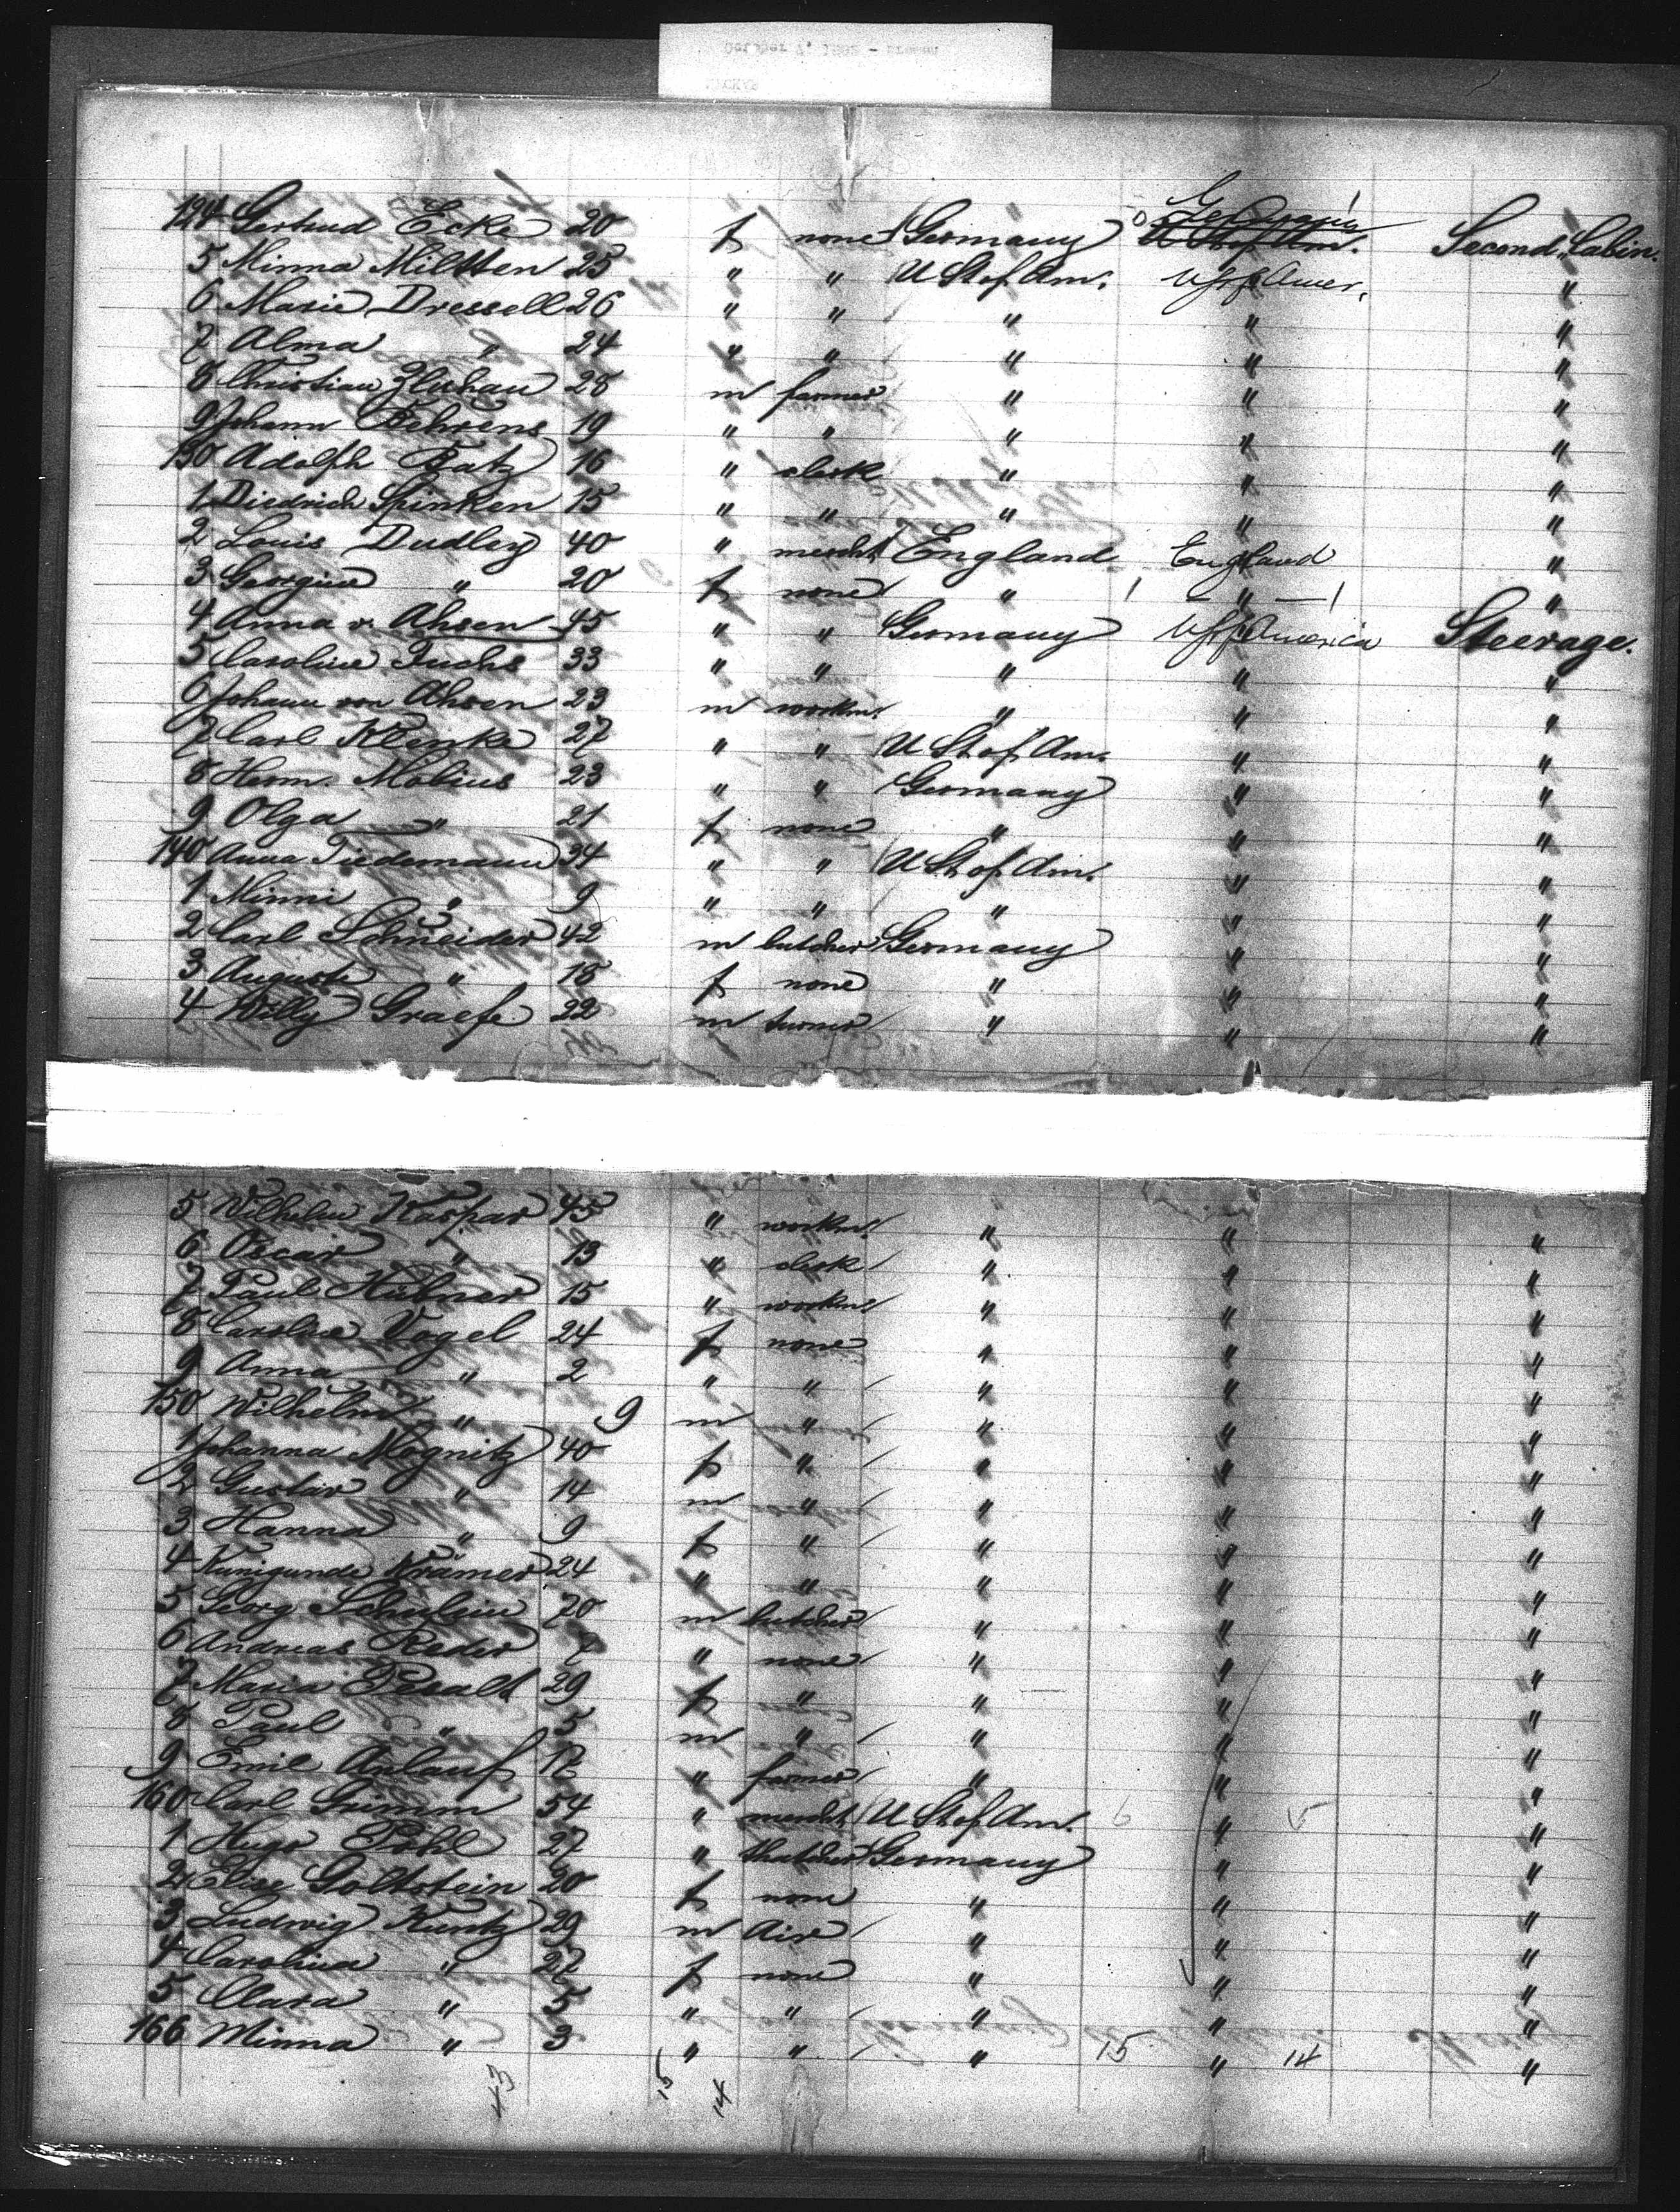 124 Gertrud Ecke 20 f none Germany Germany U St of Am. Second Cabin.
5 Minna Miltten 25 " " U St of Am. U St of Amer. "
6 Marie Dressell 26 " " " " "
7 Alma " 24 " " " " "
8 Christian 28 m farmer " " "
9 Johann Behrens 19 " " " " "
130 Adolph Batz 16 " clerk " " "
1 Diedrich Spinken 15 " " " " "
2 Louis Dudley 40 " mercht England England "
3 Georgine " 20 f none " " "
4 Anna v. Ahsen 45 " " Germany U St of America Steerage.
5 Caroline Fuchs 33 " " " " "
6 Johann von Ahsen 23 m workm. " " "
7 Carl Klenke 27 " " U St of Am. " "
8 Herm. Mobius 23 " " Germany " "
9 Olga " 21 f none " " "
140 Anna Tiedemann 34 " " U St of Am. " "
1 Minni " 9 " " " " "
2 Carl Schneider 42 m butcher Germany " "
3 Auguste " 18 f none " " "
4 Willy Graefe 22 m turner " " "
5 Wilhelm Kaspar 45 " workm. " " "
6 Oscar " 13 " clerk " " "
7 Paul Hübner 15 " workm. " " "
8 Caroline Vogel 24 f none " " "
9 Anna " 2 " " " " "
150 Wilhelm " 9 m " " " "
1 Johanna Mognitz 40 f " " " "
2 Gustav " 14 m " " " "
3 Hanna " 9 f " " " "
4 Kunigunde Krämer 24 " " " " "
5 Georg Schülein 20 m butcher " " "
6 Andreas Reder " none " " "
7 Maria Pesalt 29 f " " " "
8 Paul " 5 m " " " "
9 Emil Anlauf 17 " farmer " " "
160 Carl Grimm 54 " mercht U St of Am. " "
1 Hugo Pohl 27 " thatcher Germany " "
2 Elise Goltstein 20 f none " " "
3 Ludwig Kuntz 29 m " " "
4 Carolina " 27 f none " " "
5 Clara " 5 " " " " "
166 Minna " 3 " " " 15 " 14 "
43 15 14